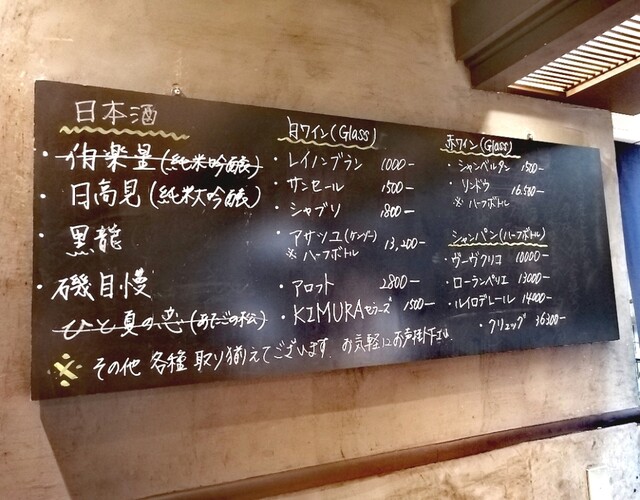 日本酒
・伯楽星(純米吟醸)
・日高見(純米大吟醸)
・黒龍
・磯自慢
ひと夏の恋(あたごの松)
白ワイン(Glass)
・レイノンブラン 1000-
・サンセール 1500-
・シャブリ 1800-
・アサツユ(ケンゾー) 13,200-
※ハーフボトル
・アロット 2800-
・KIMURAセラーズ 1500-
赤ワイン(Glass)
・シャンベルタン 1500-
・リンドウ 16.500-
※ハーフボトル
シャンパン(ハーフボトル)
・ヴーヴクリコ 10000-
・ローランペリエ 13000-
・ルイロデレール 14000-
・クリュッグ 36300-
※その他 各種 取り揃えてございます. お気軽にお声掛下さい.